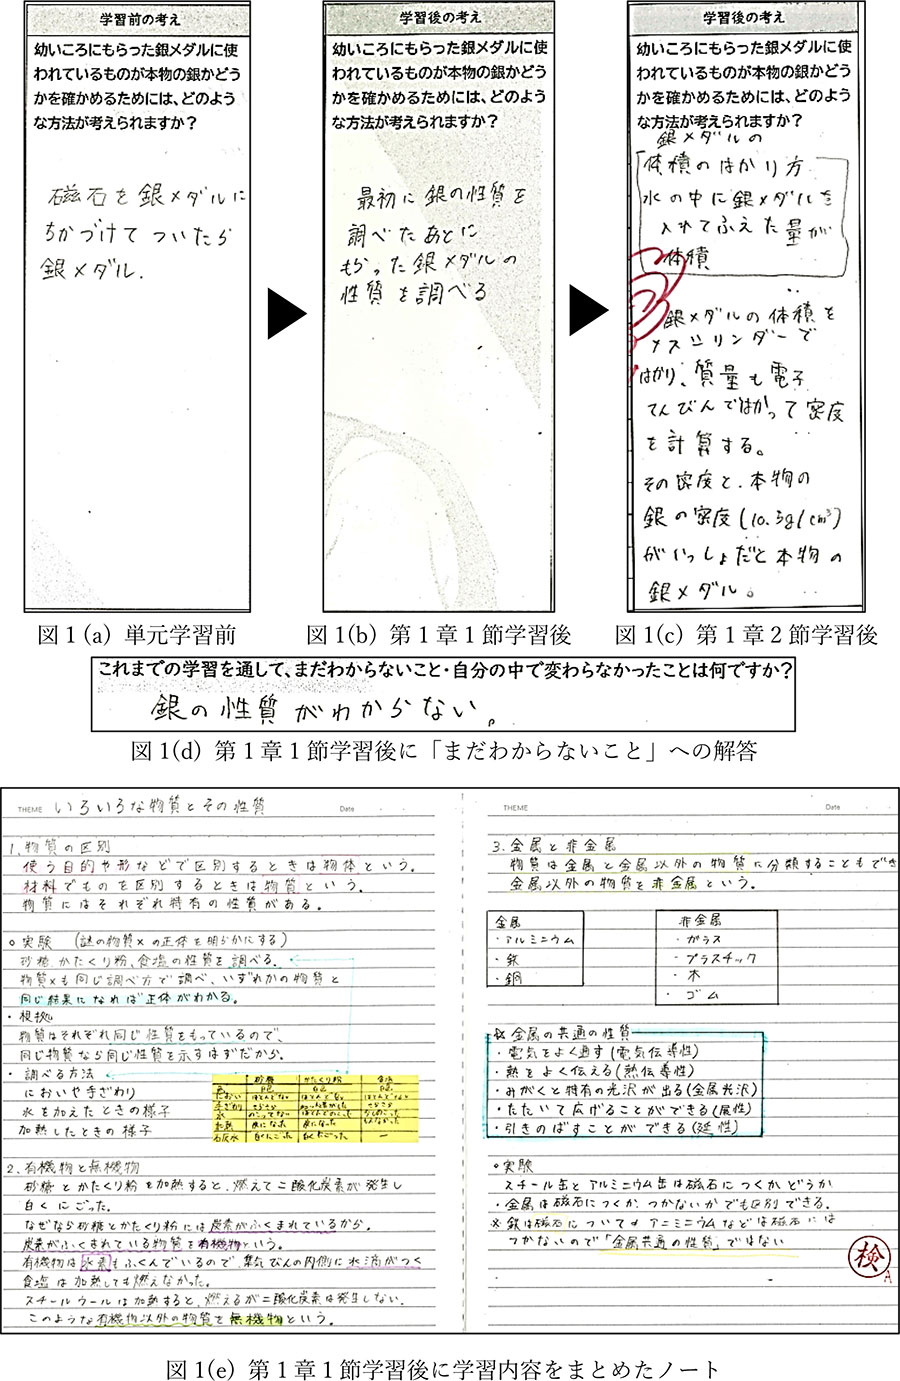 学習前の考え
幼いころにもらった銀メダルに使
われているものが本物の銀かどう
かを確かめるためには、どのよう
な方法が考えられますか？
磁石を銀メダルに
ちかづけてついたら
銀メダル.
図1(a) 単元学習前
学習後の考え
幼いころにもらった銀メダルに使
われているものが本物の銀かどう
かを確かめるためには、どのよう
な方法が考えられますか？
最初に銀の性質を
調べたあとに
もらった銀メダルの
性質を調べる
図1(b) 第1章1節学習後
学習後の考え
幼いころにもらった銀メダルに使
われているものが本物の銀かどう
かを確かめるためには、どのよう
な方法が考えられますか？
銀メダルの
体積のはかり方
水の中に銀メダルを
入れてふえた量が
体積
銀メダルの体積を
メスシリンダーで
はかり、質量も電子
てんびんではかって密度
を計算する。
その密度と、本物の
銀の密度(10.5g/cm³)
がいっしょだと本物の
銀メダル。
図1(c) 第1章2節学習後
これまでの学習を通して、まだわからないこと・自分の中で変わらなかったことは何ですか？
銀の性質がわからない。
図1(d) 第1章1節学習後に「まだわからないこと」への解答
THEME いろいろな物質とその性質 Date
1.物質の区別
使う目的や形などで区別するときは物体という。
材料でものを区別するときは物質という。
物質にはそれぞれ特有の性質がある。
○実験 (謎の物質Xの正体を明らかにする)
砂糖、かたくり粉、食塩の性質を調べる。
物質Xも同じ調べ方で調べ、いずれかの物質と
同じ結果になれば正体がわかる。
・根拠
物質はそれぞれ同じ性質をもっているので、
同じ物質なら同じ性質を示すはずだから。
・調べる方法
においや手ざわり
水を加えたときの様子
加熱したときの様子
砂糖 かたくり粉 食塩
色 白色 白色 白色
におい
手ざわり
水
加熱
石灰水 白くにごった 白くにごった ー
2.有機物と無機物
砂糖とかたくり粉を加熱すると、燃えて二酸化炭素が発生し
白くにごった。
なぜなら砂糖とかたくり粉には炭素がふくまれているから。
炭素がふくまれている物質を有機物という。
有機物は水素もふくんでいるので、集気びんの内側に水滴がつく
食塩は加熱しても燃えなかった。
スチールウールは加熱すると、燃えるが二酸化炭素は発生しない.
このような有機物以外の物質を無機物という。
THEME Date
3.金属と非金属
物質は金属と金属以外の物質に分類することもでき
金属以外の物質を非金属という。
金属
・アルミニウム
・鉄
・銅
非金属
・ガラス
・プラスチック
・木
・ゴム
☆金属の共通の性質
・電気をよく通す(電気伝導性)
・熱をよく伝える(熱伝導性)
・みがくと特有の光沢が出る(金属光沢)
・たたいて広げることができる(展性)
・引きのばすことができる(延性)
○実験
スチール缶とアルミニウム缶は磁石につくかどうか
・金属は磁石につくか、つかないかでも区別できる.
※鉄は磁石についても アニミニウムなどは磁石には
つかないので「金属共通の性質」ではない
検
A
図1(e) 第1章1節学習後に学習内容をまとめたノート